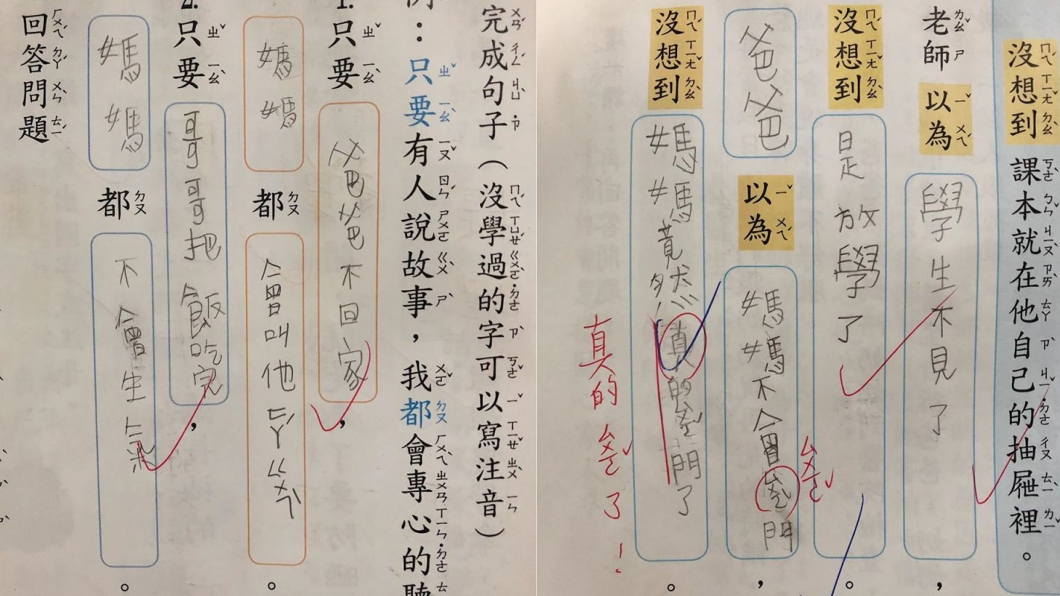 完成句子(沒學過的字可以寫注音)
例:只要有人說故事,我都會專心的聽
1.只要爸爸不回家,
媽媽都會叫他。
2.只要哥哥把飯吃完,
媽媽都不會生氣。
回答問題
沒想到課本就在他自己的抽屜裡。
老師以為學生不見了,
沒想到是放學了。
爸爸以為媽媽不會門,
沒想到媽媽竟然真的門了。
真的了!